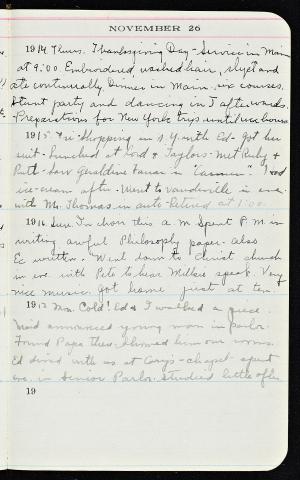 NOVEMBER 26
1914 Thurs. Thanksgiving Day - Service in Main
at 9:00. Embroidered, washed hair, slept and
ate continually. Dinner in Main. six courses.
Stunt party and dancing in J afterwards.
Preparation for New York trip until wee hours
1915 Fri - Shopping in N.Y. with Ed - Got her
suit - Lunched at Lord & Taylors - Met Ruby &
Ruth - Saw Geraldine Farrar in "Carmen". Good
ice-cream after. Went to vaudeville in eve.
with Mr. Thomas in auto - Retired at 1:00.
1916 Sun. In choir this a.m. Spent P.M. in
writing awful Philosophy paper. also
Ec written. Went down to Christ church
in eve. with Pete to hear speak. Very
nice music. Got home just at ten.
1917 Mon. Cold! Ed & I walked a piece.
Maid announced young man in parlor.
Found Papa there. Showed him our rooms.
Ed dined with us at Cary's - chapel - spent
eve. in Senior Parlor. Studied little after.
19